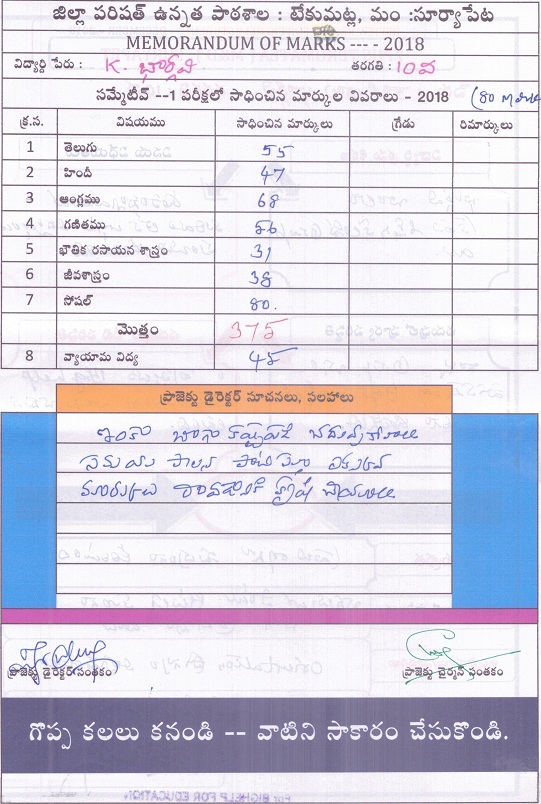 జిల్లా పరిషత్ ఉన్నత పాఠశాల : టేకుమట్ల, మం :సూర్యాపేట
MEMORANDUM OF MARKS --- - 2018
విద్యార్థి పేరు : K. భార్గవి తరగతి : 10వ
సమ్మేటీవ్ --1 పరీక్షలో సాధించిన మార్కుల వివరాలు - 2018 (80 Marks
క్ర.స. విషయము సాధించిన మార్కులు గ్రేడు రిమార్కులు
1 తెలుగు 55
2 హిందీ 47
3 ఆంగ్లము 68
4 గణితము 56
5 భౌతిక రసాయన శాస్త్రం 31
6 జీవశాస్త్రం 38
7 సోషల్ 80.
మొత్తం 375
8 వ్యాయామ విద్య 45
ప్రాజెక్టు డైరెక్టర్ సూచనలు, సలహాలు
ఇంకా బాగా కష్టపడి చదువుకోవాలి
సమయ పాలన పాటిస్తూ
మార్కులు రావడానికి కృషి చేయాలి
ప్రాజెక్టు డైరెక్టర్ సంతకం ప్రాజెక్టు చైర్మన్ సంతకం
గొప్ప కలలు కనండి -- వాటిని సాకారం చేసుకొండి.